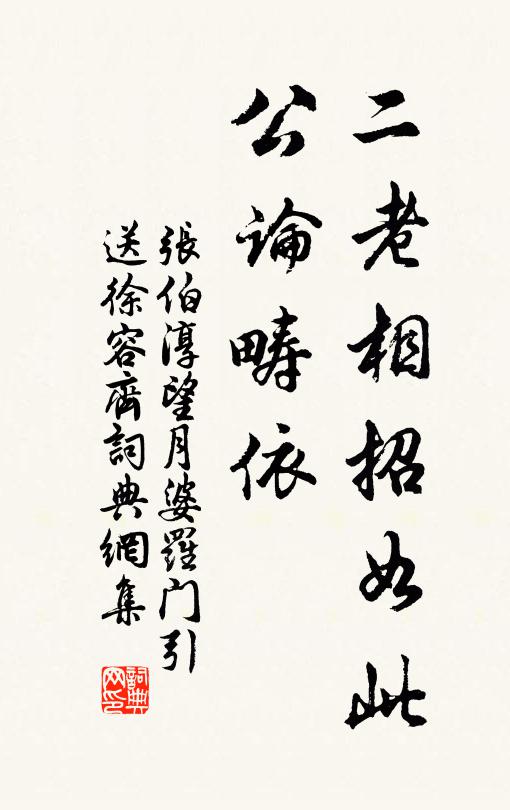 二老相招如此
公論疇依
張伯淳望月婆羅门引
送徐容齊詞典網集
詞典网印